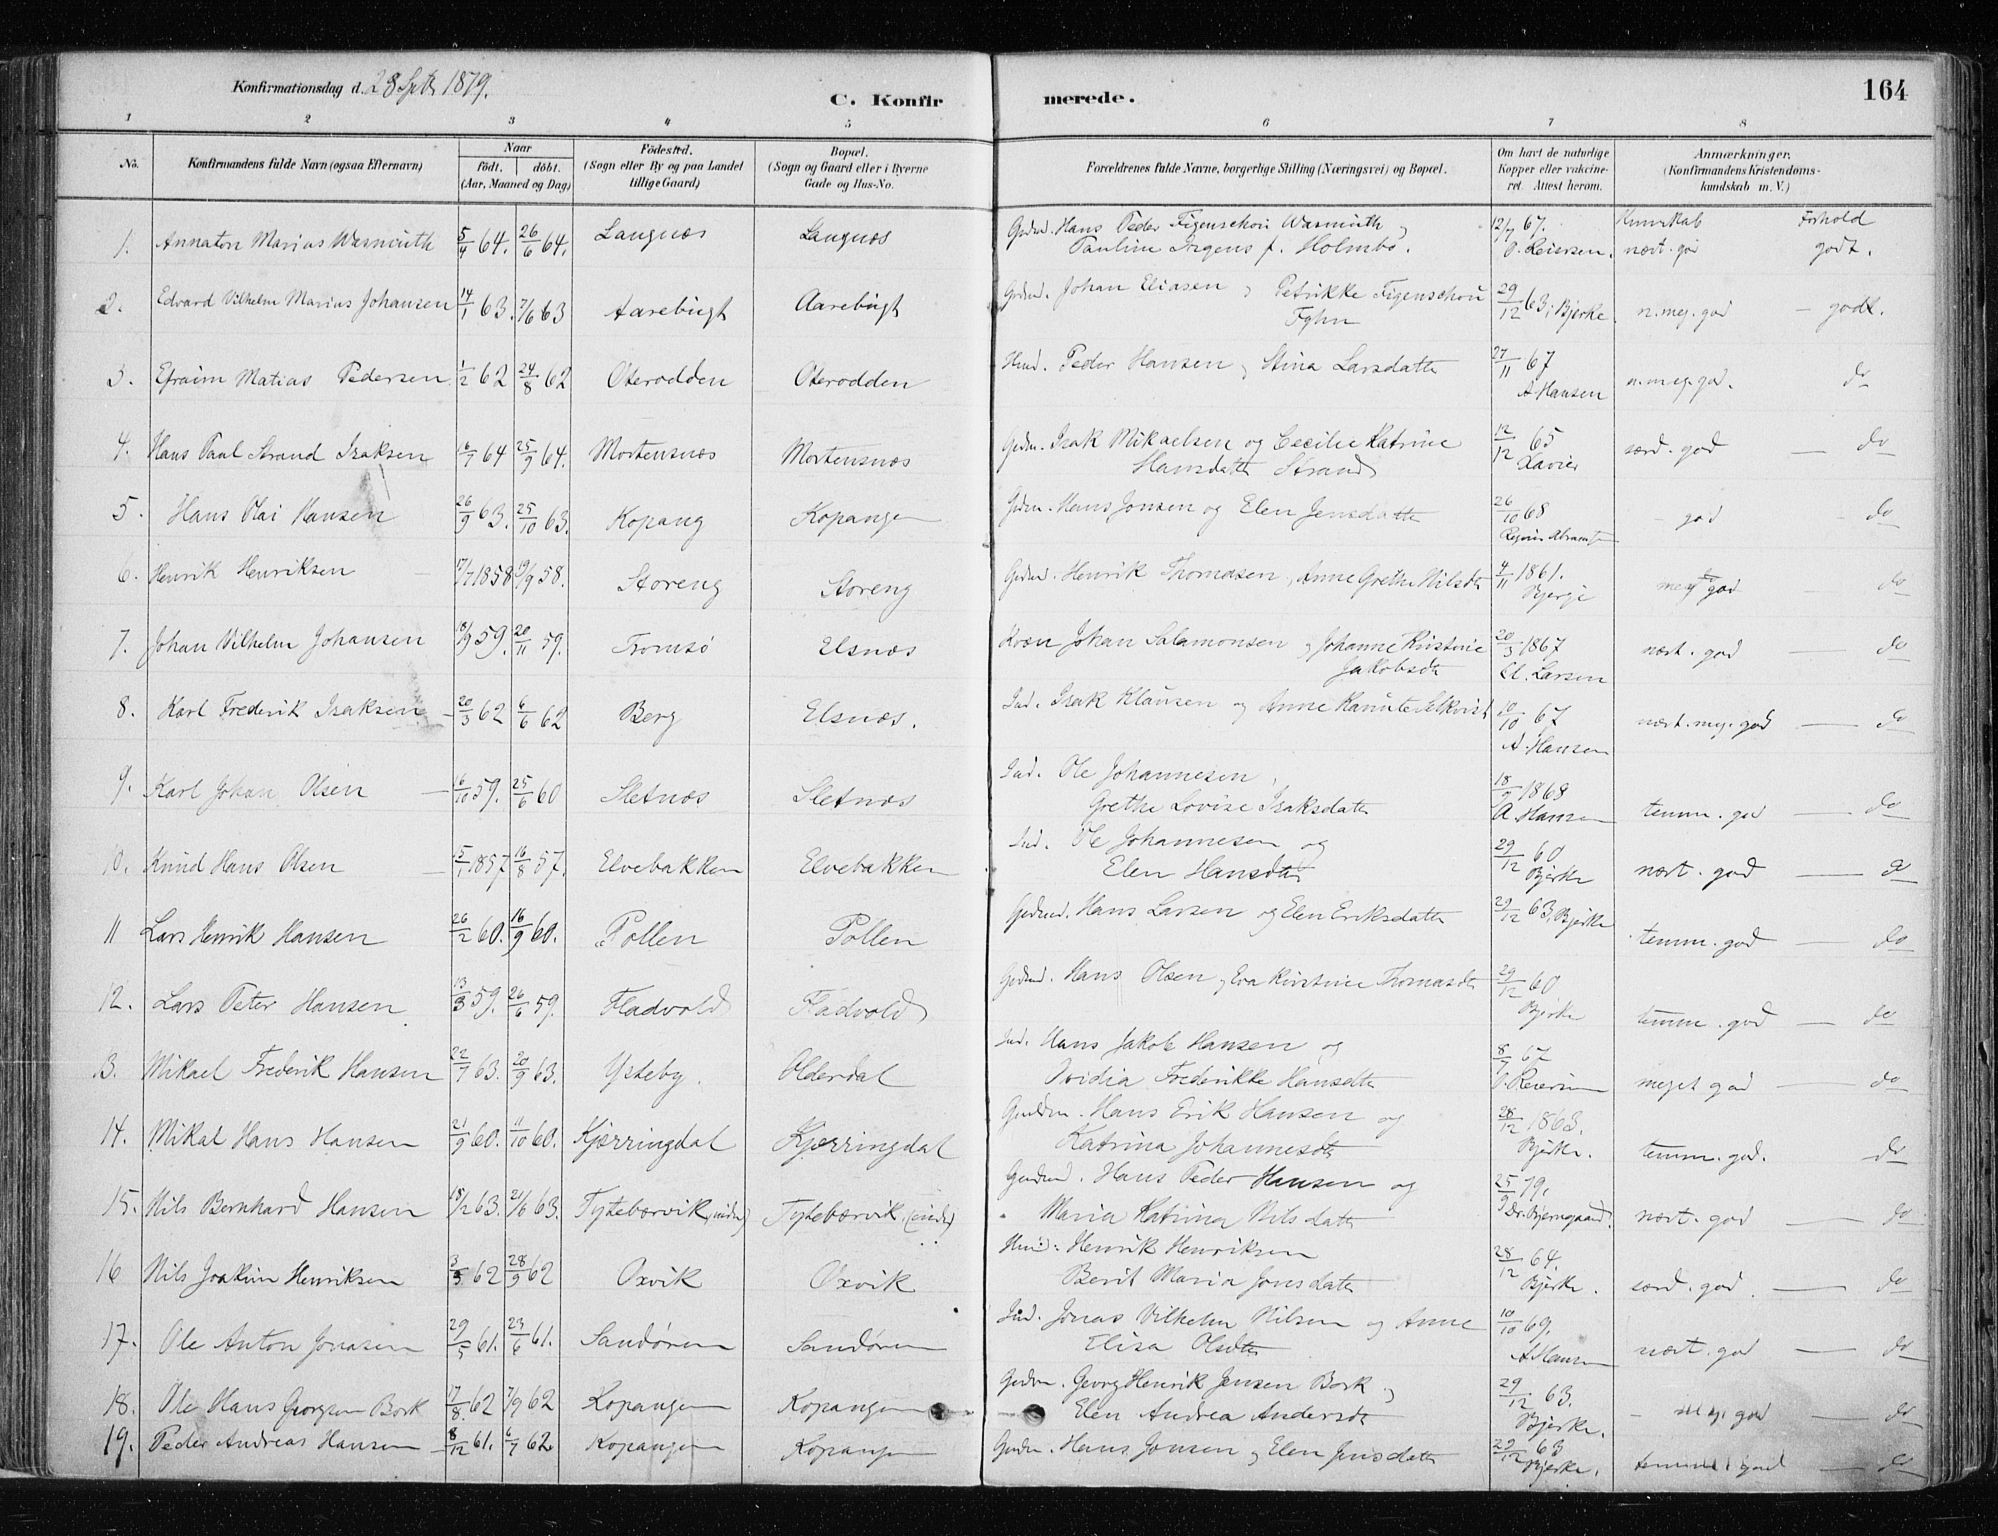 Konfirmationsdag d. 28 Septbr 1879.
C. Konfirmerede.
164
1 2 3 4 5 6 7 8
No. Konfirmandens fulde Navn (ogsaa Efternavn) Naar født. døbt. (Aar, Maaned og Dag) Fødested. (Sogn eller By og paa Landet tillige Gaard) Bopæl. (Sogn og Gaard eller i Byerne Gade og Hus-No. Forældrenes fulde Navne, borgerlige Stilling (Næringsvei) og Bopæl. Om havt de naturlige Kopper eller vakcineret. Attest herom. Anmærkninger. (Konfirmandens Kristendomskundskab m. V.)
Kunskab Forhold
1. Annaton Marius Wasmuth 5/4 64. 26/6 64. Langnæs Langnæs Hans Peder Figenschou Wasmuth 12/7 67.
Pauline Irgens f. Holmbo. O. Reiersen. nært. god godt.
2. Edvard Vilhelm Marius Johansen 14/1 63. 7/6 63 Aarebugt Aarebugt Johan Eliasen Petrikke Figenschou 29/12 63, Bjerke. n. meg. god – godt.
3. Efraim Matias Pedersen 1/2 62 24/8 62 Oterodden Oterodden Peder Hansen Stina Larsdatter 27/11 67
A Hansen n. meg. god. do
4. Hans Paul Strand Isaksen 16/7 64 25/9 64. Mortensnæs Mortensnæs Isak Mikaelsen og Cecilie Katrine 12/12 65
Hansdatter Strand Xavier særd. god – do
5. Hans Olai Hansen 26/9 63. 25/10 63. Kopang Kopangen Hans Jonsen og Elen Jensdatter 26/10 68
- god - do
6. Henrik Henriksen 17/7 1858 19/9 58. Storeng Storeng Henrik Thomasen, Anne Grethe Nilsdtr 4/11 1861.
meg god – do
7. Johan Vilhelm Johansen 18/9 59. 20/11 59. Tromsø Elsnæs Kvæn Johan Salamonsen Johanne Kristine 20/3 1867
Jakobsdtr El. Larsen nært. god – do
8. Karl Frederik Isaksen 20/3 62 6/6 62 Berg Elsnæs. Ind. Isak Klausen og Anne 10/10 67
A. Hansen nært. meg. god – do
9. Karl Johan Olsen 16/10 59. 25/6 60 Sletnæs Sletnæs Ind. Ole Johannesen,
Grethe Lovise Isaksdatter A. Hansen temm. god – do
10. Knud Hans Olsen 15/1 1857 16/8 57. Elvebakken Elvebakken Ind. Ole Johannesen og 29/12 60
Elen Hansdtr Bjerke nært. god – do
11 Lars Henrik Hansen 26/2 60. 16/9 60. Pollen Pollen Hans Larsen og Elen Eriksdatter 29/12 63, Bjerke
temm. god – do
12. Lars Peter Hansen 13/3 59. 26/6 59. Fladvold Fladvold Hans Olsen, Eva Kristine Thomasdtr 29/12 60
Bjerke temm. god – do
13. Mikael Frederik Hansen 22/7 63. 20/9 63. Ysteby. Olderdal Ind. Hans Jakob Hansen og 8/7 67
Ovidia Frederikke Hansdtr O. Reiersen meget god – do
14. Mikal Hans Hansen 21/9 60. 11/10 60. Kjærringdal Kjærringdal Hans Erik Hansen og 28/12 1863.
Katrina Johannesdtr Bjerke. temm. god. do
15. Nils Bernhard Hansen 18/12 63. 21/6 63. Tytebærvik (indre) Tytebærvik (indre) Hans Peder Hansen og 25/9 79.
Maria Katrina Nilsdatter Dr. Bjerngaard. nært. god – do
16 Nils Joakim Henriksen 3/5 62 28/9 62 Oxvik Oxvik Henrik Henriksen 28/12 64.
Berit Maria Jonsdatter Bjerke. særd. god. – do
17. Ole Anton Jonasen 29/5 61. 23/6 61. Sandøren Sandøren Ind. Jonas Vilhelm Nilsen og Anne 10/10 69.
Elisa Olsdtr A Hansen nært. god – do
18. Ole Hans Georgsen Bork 17/8 62 7/9 62 Kopangen Kopangen Georg Henrik Jensen Bork 29/12 63.
Elen Andrea Andersdtr Bjerke. god – do
19. Peder Andreas Hansen 8/12 61. 6/7 62. Kopangen Kopangen Hans Jonsen og Elen Jensdatter 29/12 63
Bjerke. god – do